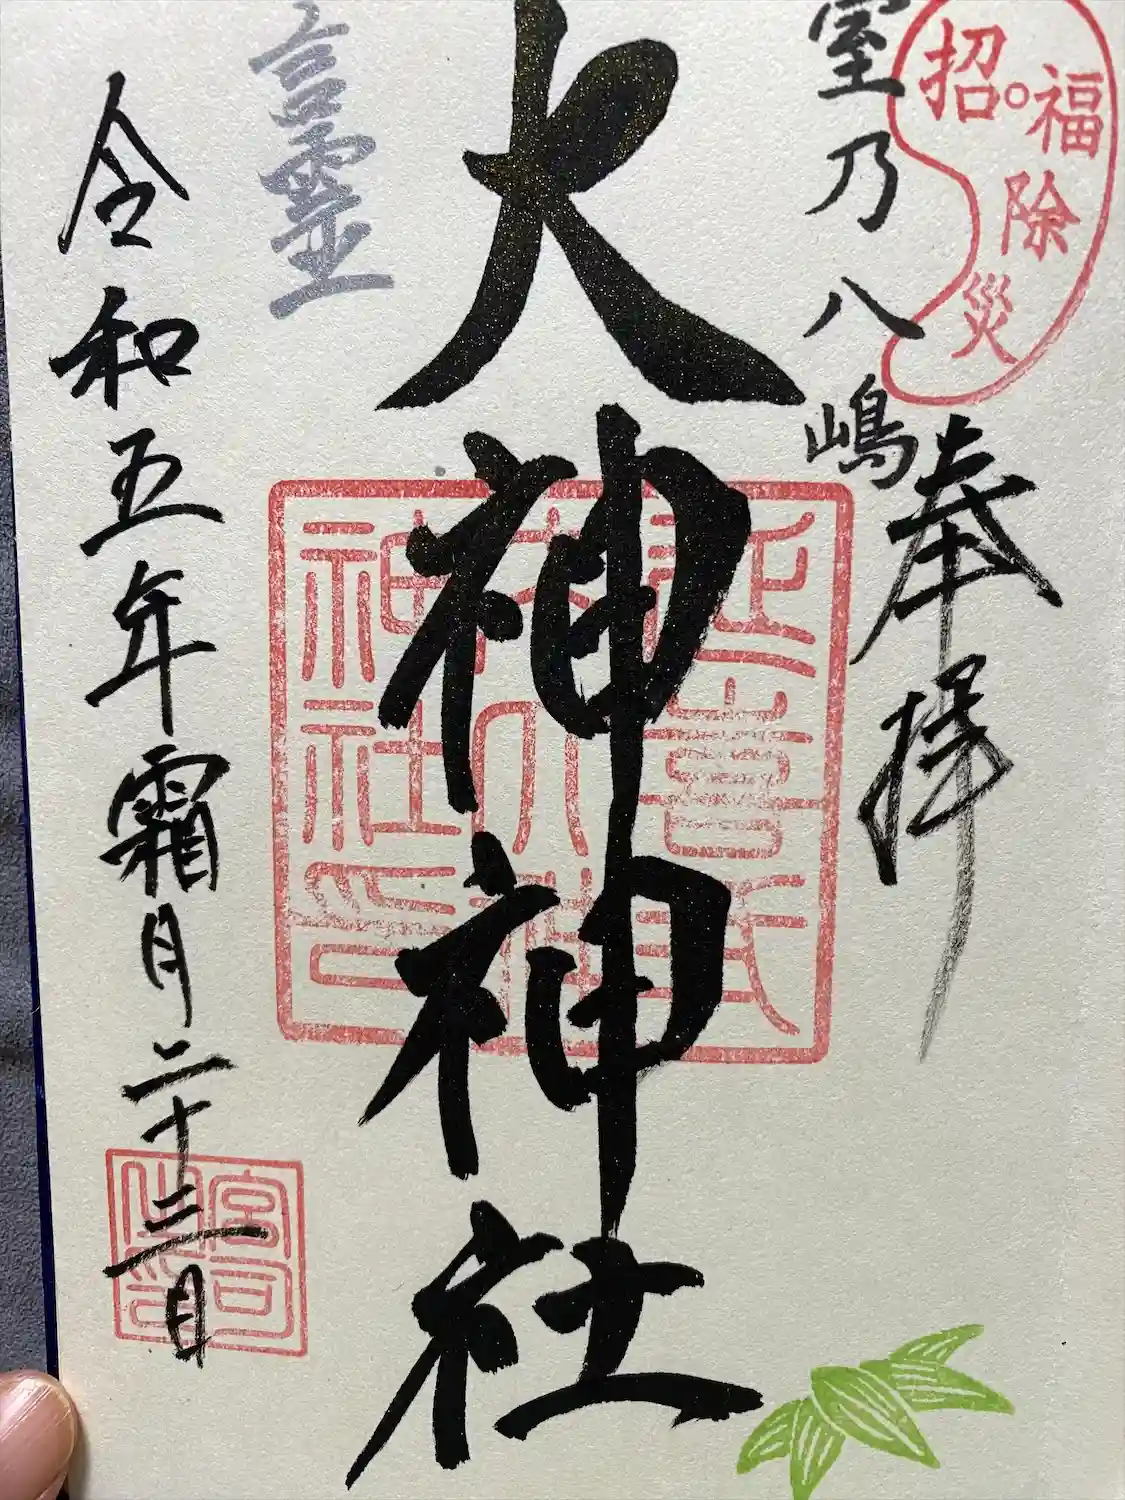 招福除災
奉拝
室乃八嶋
大神神社
延喜式
神社印
言霊
令和五年霜月二十三日
宮司之印